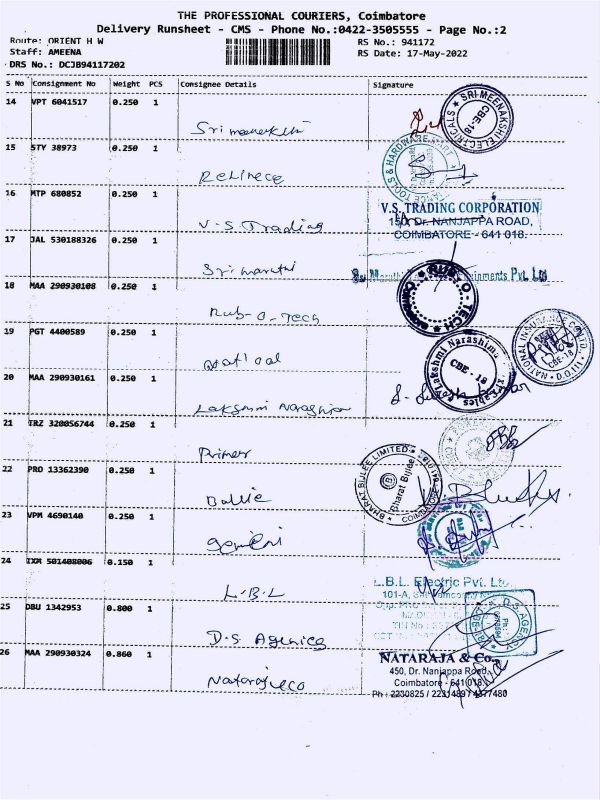 THE PROFESSIONAL COURIERS, Coimbatore
Delivery Runsheet - CMS - Phone No.:0422-3505555 - Page No.:2
Route: ORIENT H W
RS No.: 941172
Staff: AMEENA
RS Date: 17-May-2022
DRS No.: DCJB94117202
S No Consignment No Weight PCS Consignee Details Signature
14 VPT 6041517 0.250 1
SRI MEENAKSHI ELECTRICALS CBE-18
15 STY 38973 0.250 1
TOOLS & HARDWARE
16 MTP 680852 0.250 1
V.S. Trading
V.S. TRADING CORPORATION
Dr. NANJAPPA ROAD,
COIMBATORE - 641 018.
17 JAL 530188326 0.250 1
Sri maruthi
Pvt. Ltd
18 MAA 290930108 0.250 1
Rub-O-Tech
RUB-O-TECH
19 PGT 4400589 0.250 1
NATIONAL INSURANCE CO. LTD. CBE-18
20 MAA 290930161 0.250 1
Lakshmi Narashima CBE - 18
21 TRZ 320056744 0.250 1
22 PRO 13362390 0.250 1
BHARAT BIJLEE LIMITED
Bharat Bijlee
COIMBATORE
23 VPM 4690140 0.250 1
Gemini
24 IXM 501408006 0.150 1
L.B.L
L.B.L. Electric Pvt. Ltd.
101-A,
25 DBU 1342953 0.800 1
D.S. Agencies
26 MAA 290930324 0.860 1
Nataraj & co
NATARAJA & Co.,
450, Dr. Nanjappa Road,
Coimbatore - 641 018.
Ph : 2230825 / 2231489 / 4377480